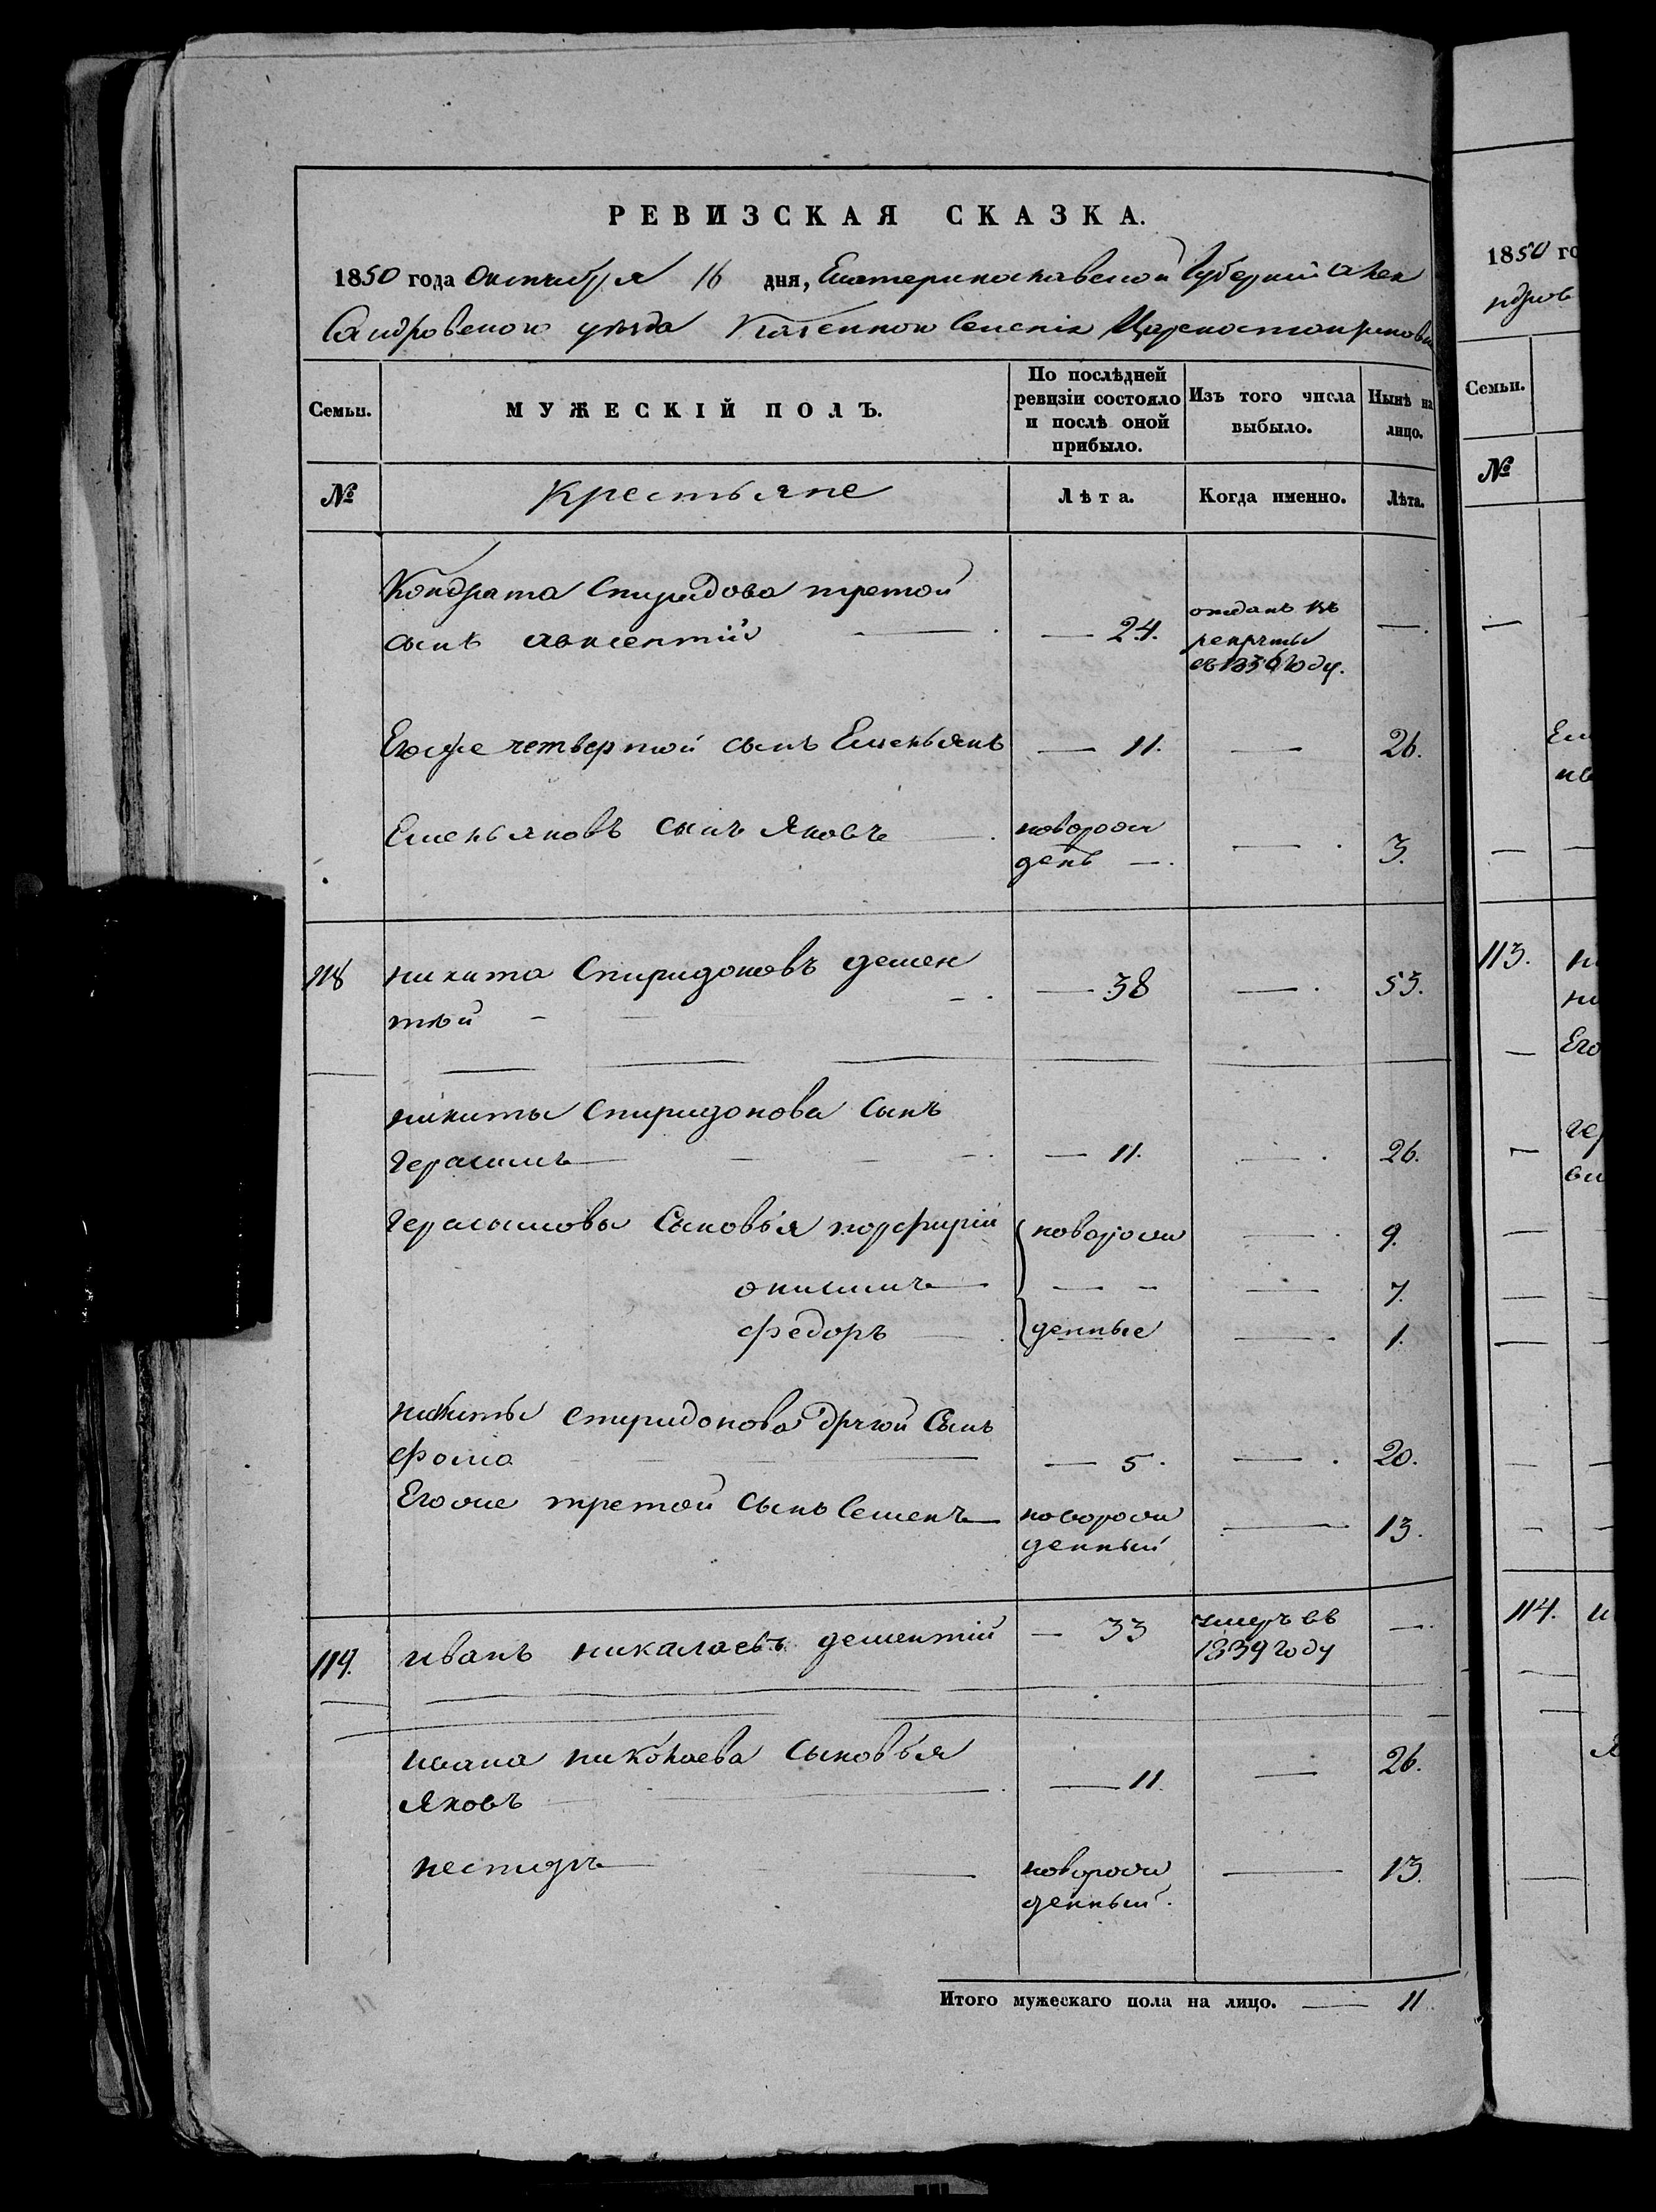 РЕВИЗСКАЯ СКАЗКА.
1850 года Октября 16 дня, Екатеринославской Губернии Алек
Сандровскаго уѣзда Казенного Селенія
Семьи.
МУЖЕСКІЙ ПОЛЪ.
По послѣдней ревизіи состояло и послѣ оной прибыло.
Изъ того числа выбыло.
Нынѣ на лицо.
№
Крестьяне
Лѣта.
Когда именно.
Лѣта.
Кондрата Спиридова третой
сынъ авксентий — 24. отданъ въ рекруты въ 1836 году. —
Егоже четвертой сынъ Емельянъ — 11. — 26.
Емельяновъ сынъ Яковъ новорож денъ — — 3.
118 никита Спиридоновъ демен
тѣй — 38 — 53.
никиты Спиридонова сынъ
Герасимъ — 11. — 26.
Герасимовы Сыновья порфирій новорож — 9.
онисимъ — — — 7.
федоръ денные — 1.
никиты спиридонова другой Сынъ
фома — 5. — 20.
Егоже третой сынъ Семенъ новорож денный — 13.
119. иванъ никалаевъ дементій — 33 умеръ въ 1839 году —
ивана николаева сыновья
Яковъ — 11. — 26.
нестиръ новорож денный. — 13.
Итого мужескаго пола на лицо. — 11
1850 го
Семьи.
№
113.
Его
114.